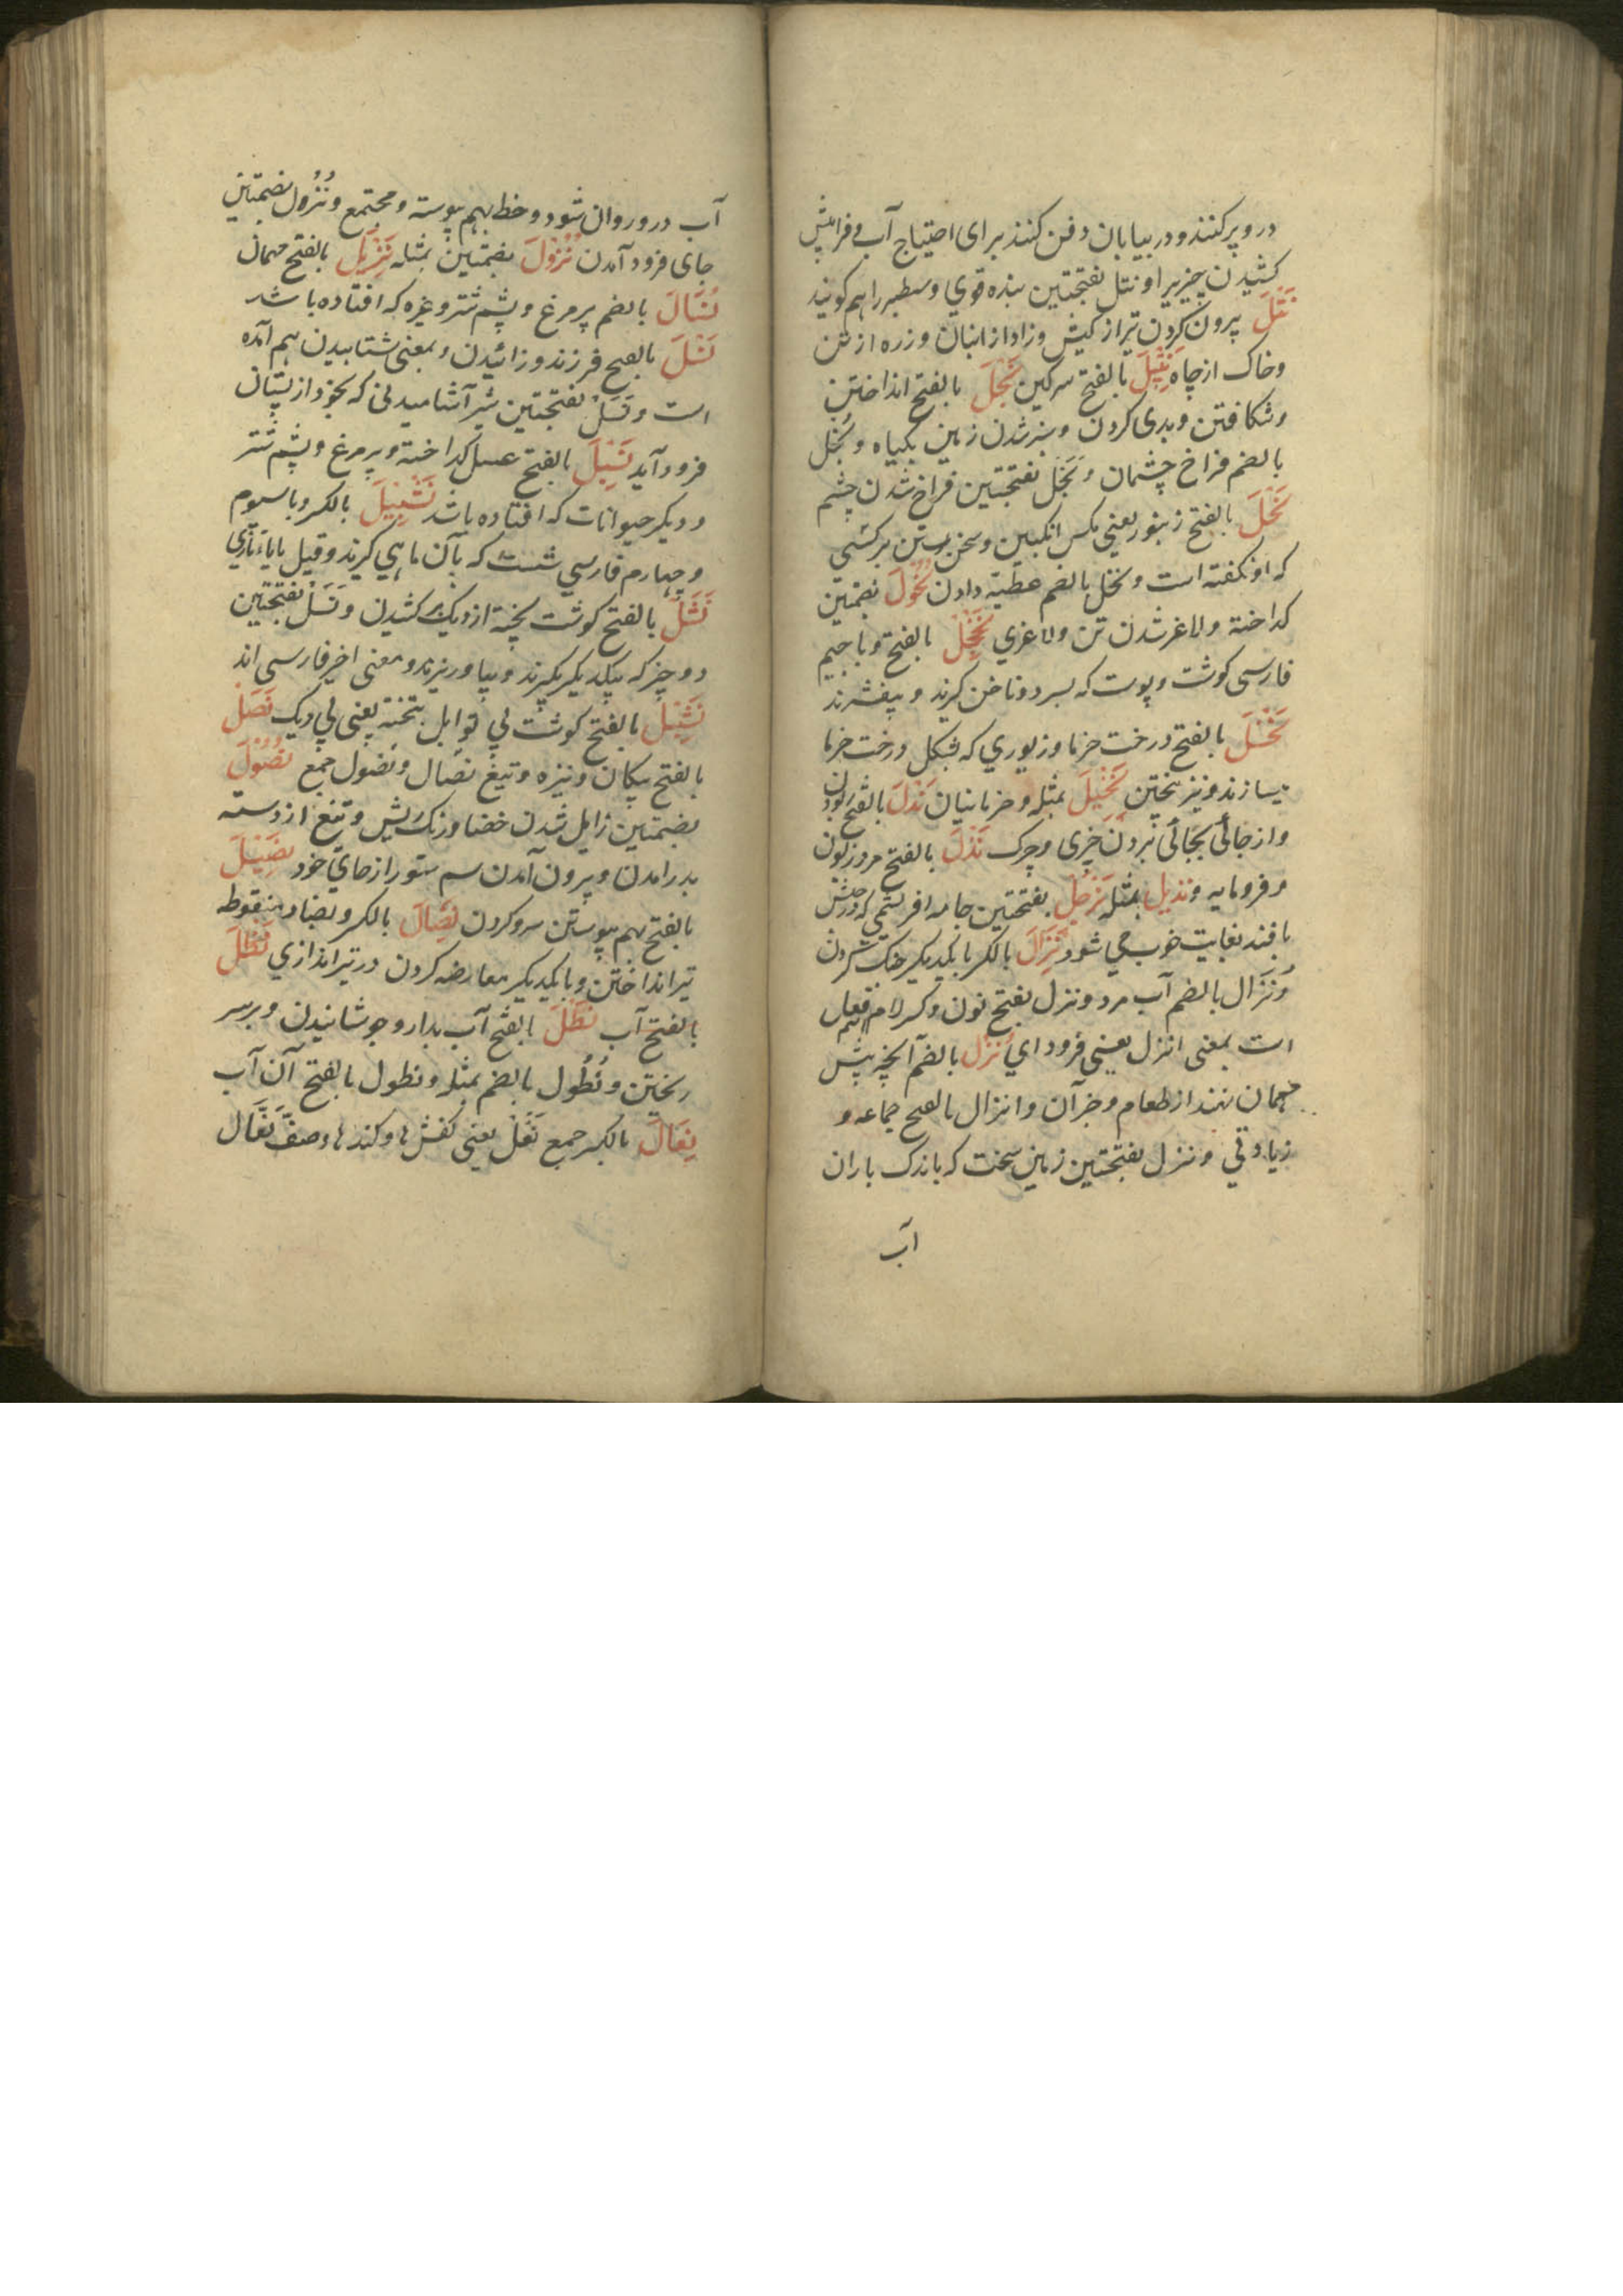 در و پر کنند و در بیابان دفن کنند برای احتیاج آب و فراپیش
کشیدن چیزیرا و نتل بفتحتین بنده قوی و سطبر را هم کویند
نَثْلَ بیرون کردن تیر از کیش و زاد از انبان و زره از تن
و خاک از چاه نَثِیلَ بالفتح سرکین نَجْلَ بالفتح انداختن
و شکافتن و بدی کردن و سبز شدن زمین بکیاه و نُجْل
بالضم فراخ چشمان و نَجَل بفتحتین فراخ شدن چشم
نَحْلَ بالفتح زنبور یعنی مکس انکبین و سخن بستن بر کسی
که او نکفته است و نحل بالضم عطیّه دادن نُحُوْلَ بضمتین
کداخته و لاغر شدن تن و لاغری بالفتح و با جیم
فارسی کوشت و پوست که بسر دو ناخن کیرند و بیفشرند
نَخْلَ بالفتح درخت خرما و زیوری که بشکل درخت خرما
میسازند و نیز بیختن نَخِیْلَ بمثله و خرمابنیان نَدْلَ بالفتح ربودن
و از جائی بجائی بردن چیزی و چرک نَذْلَ بالفتح مرد زبون
و فرومایه و نذیل بمثله بفتحتین جامه ابریشمی که درحبش
بافند بغایت خوب می شود نِزَالَ بالکسر با یکدیکر جنک کردن
و نُزَال بالضم آب مرد و نزل بفتح نون و کسر لام اسم فعل
است بمعنی انزل یعنی فرود آی نُزْل بالضم آنچه پیش
مهمان نهند از طعام و جز آن و انزال بالفتح جماعه و
زیادتی و نزل بفتحتین زمین سخت که باندک باران
آب
آب در و روان شود و خط بهم پیوسته و مجتمع و نُزُول بضمتین
جای فرود آمدن نُزُوْلَ بضمتین بمثله نَزِیْل بالفتح مهمان
نُسَالَ بالضم پر مرغ و پشم شتر و غیره که افتاده باشد
نَسْلَ بالفتح فرزند و زائیدن و بمعنی شتابیدن هم آمده
است و نَسَلْ بفتحتین شیر آشامیدنی که بخود از پستان
فرود آید نَسِیْلَ بالفتح عسل کداخته و پر مرغ و پشم شتر
و دیکر حیوانات که افتاده باشد بالکسر و با سیوم
و چهارم فارسی شست که بآن ماهی کیرند و قیل با یاء تازی
نَشْلَ بالفتح کوشت پخته از دیک کشیدن و نَسَلْ بفتحتین
دو چیز که بیکدیکر بکیرند و بیاویزند و معنی اخیر فارسی اند
نَشِیْلَ بالفتح کوشت بی توابل پخته یعنی بی دیک نَصْلَ
بالفتح پیکان و نیزه و تیغ نصال و نُصُول جمع نُصُوْلَ
بضمتین زایل شدن خضاب و رنک ریش و تیغ از دسته
بدر امدن و بیرون آمدن سم ستور از جای خود
بالفتح بهم پیوستن سر و کردن نِضَالَ بالکسر و بضاد منقوطه
تیر انداختن و با یکدیکر معارضه کردن در تیر اندازی
بالفتح آب نَطْلَ بالفتح آب بدارو جوشانیدن و بر سر
ریختن و نُطُول بالضم بمثله و نطول بالفتح آن آب
نِعَالَ بالکسر جمع نَعْلْ یعنی کفش ها و کندها و صفّ نعَال